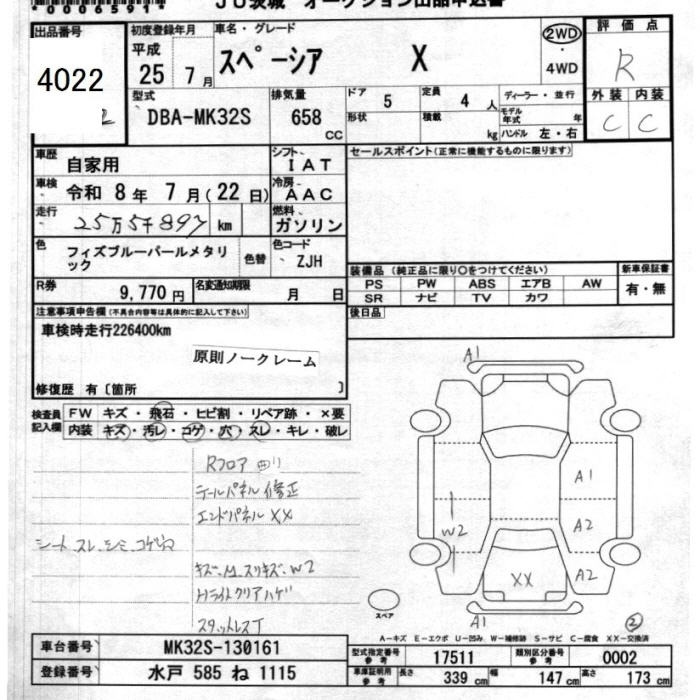 *00065914*
JU茨城 オークション出品申込書
出品番号
4022
初度登録年月
平成
25 7月
車名・グレード
スペーシア X
2WD
・
4WD
評価点
R
外装 内装
C C
型式
DBA-MK32S
排気量
658
CC
ドア 5
定員 4 人
ディーラー・並行
形状
積載 kg
モデル年式 年
ハンドル 左・右
車歴
自家用
シフト
IAT
セールスポイント(正常に機能するものに限ります)
車検
令和 8年 7月(22日)
冷房
AAC
走行
25万5千897 km
燃料
ガソリン
色
フィズブルーパールメタリ
ック
色替
色コード
ZJH
装備品 (純正品に限り○をつけてください)
新車保証書
PS PW ABS エアB AW
SR ナビ TV カワ
有・無
R券
9,770円
名変通知期限
月 日
後日品
注意事項申告欄(不具合内容等は具体的に記入して下さい)
車検時走行226400km
原則ノークレーム
修復歴 有〔箇所 〕
検査員
記入欄
FW キズ・飛石・ヒビ割・リペア跡・×要
内装 キズ・汚レ・コゲ・穴・スレ・キレ・破レ
Rフロア 曲り
テールパネル修正
エンドパネル XX
シート スレ、シミ、コゲ穴
キズ・M.スリキズ・W2
Hライトクリアハゲ
スタットレスT
A1
A1
A2
W2
A2
XX
A1
2
スペア
A-キズ E-エクボ U-凹み W-補修跡 S-サビ C-腐食 XX-交換済
車台番号
MK32S-130161
登録番号
水戸 585 ね 1115
型式指定番号
参考
17511
類別区分番号
参考
0002
車庫証明用
参考
長さ 339 cm
幅 147 cm
高さ 173 cm